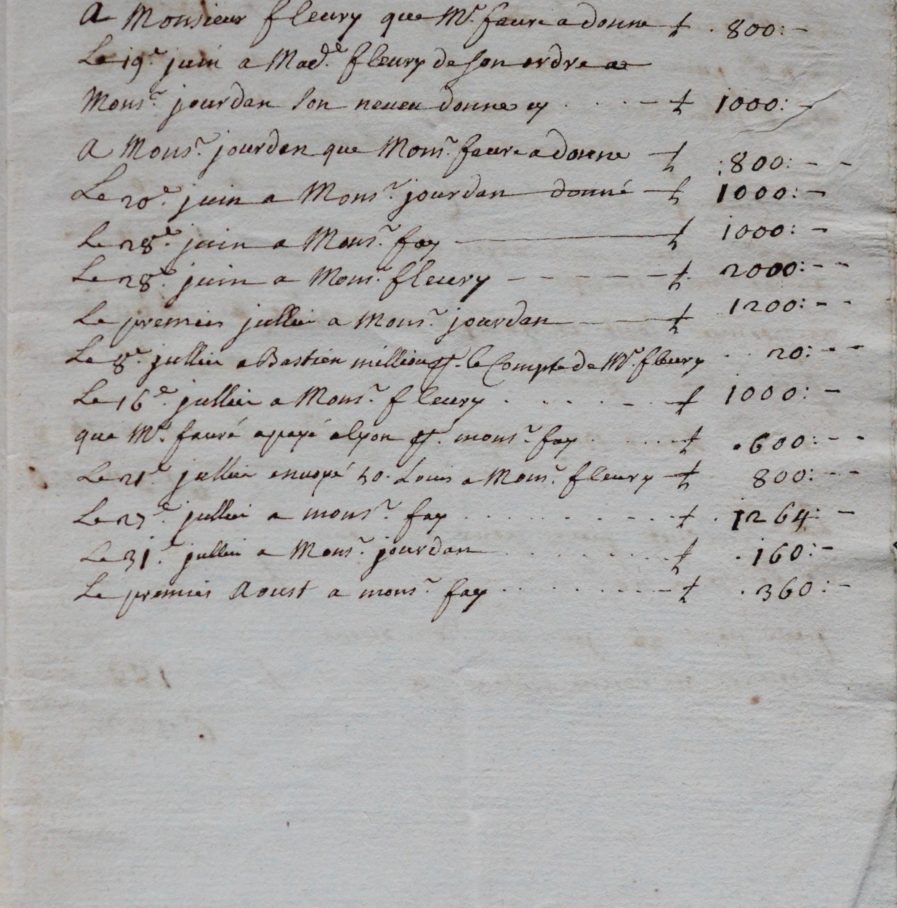 A Monsieur fleury que Mr. faure a donne ₶ 800:-
Le 19e. juin a Mad.e fleury de son ordre a
Monsr. jourdan son neveu donne cy . . . . - ₶ 1000:-
A Monsr. jourdan que Monsr. faure a donne ₶ 800:--
Le 20e. juin a Monsr. jourdan donné - ₶ 1000:-
Le 28e. juin a Monsr. fay ₶ 1000:-
Le 28e. juin a Monsr. fleury ------ ₶ 2000:--
Le premier jullie a Monsr. jourdan ₶ 1200:--
Le 8e. jullie a Bastien le Compte de Mr. fleury . . 20:--
Le 16e. jullie a Monsr. fleury . . . . - . - ₶ 1000:-
que Mr. fauré a payé a lyon monsr. fay . . . . . ₶ 600:--
Le 21e. jullie envoyé Louis a Monsr. fleury ₶ 800:--
Le 27e. jullie a monsr. fay . . . . . . . . ₶ 1264:-
Le 31e. jullie a Monsr. jourdan . . . . . . ₶ 160:-
Le premier Aoust a monsr. fay . . . . . . . . - ₶ 360:-